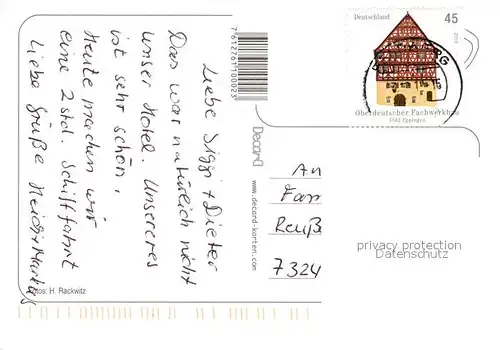 Liebe Siggi + Dieter
Das war natürlich nicht
unser Hotel. Unsereres
ist sehr schön.
Heute machen wir
eine 2 std. Schifffahrt
Liebe Grüße Heidi + Markus
Fotos: H. Rackwitz
7612761100023
Decard
www.decard-karten.com
Deutschland
45
Oberdeutscher Fachwerkbau
Eppingen
An
Fam
Reuß
7324
privacy protection
Datenschutz